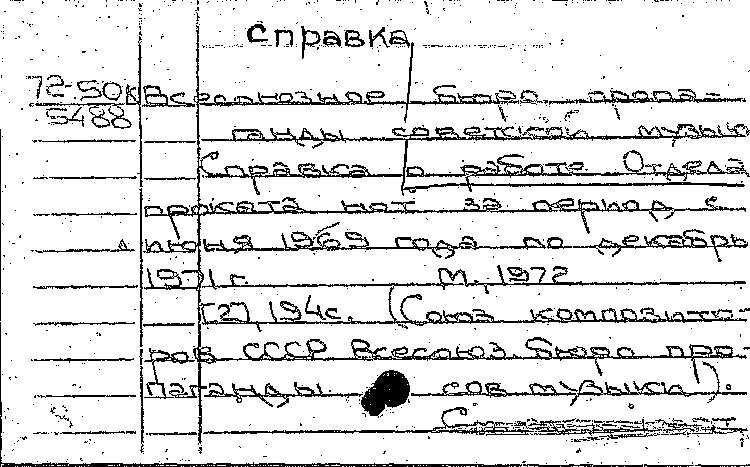 Справка
72-50к Всесоюзное бюро пропа-
5488 ганды советской музыки
Справка о работе Отдела
проката нот за период с
июня 1969 года по декабрь
1971 г. М., 1972
[2], 194с. (Союз компози­то-
ров СССР Всесоюз. бюро про-
паганды сов музыки).